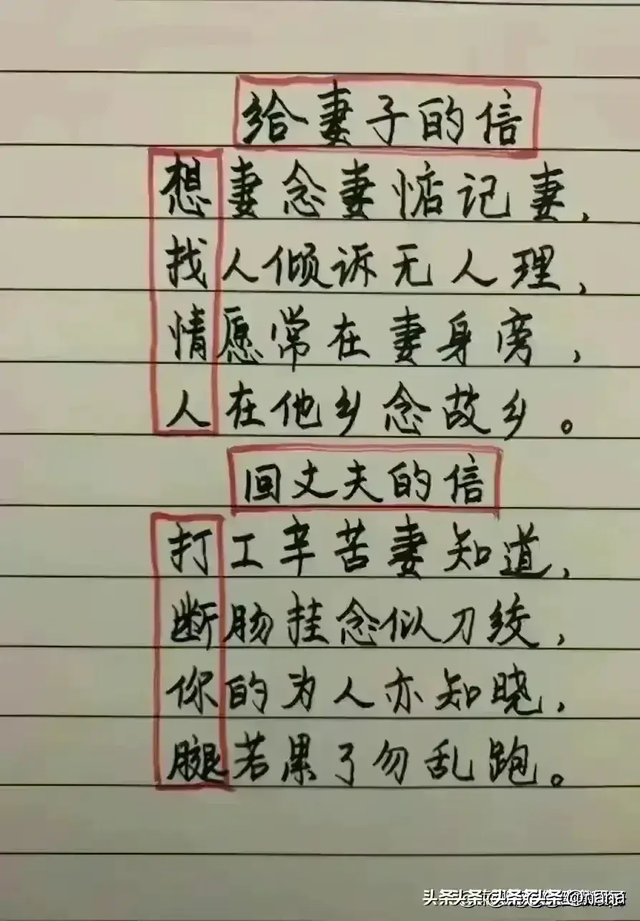 给妻子的信
想妻念妻惦记妻,
找人倾诉无人理,
情愿常在妻身旁,
人在他乡念故乡。
回丈夫的信
打工辛苦妻知道,
断肠挂念似刀绞,
你的为人亦知晓,
腿若果了勿乱跑。
头条 @nana